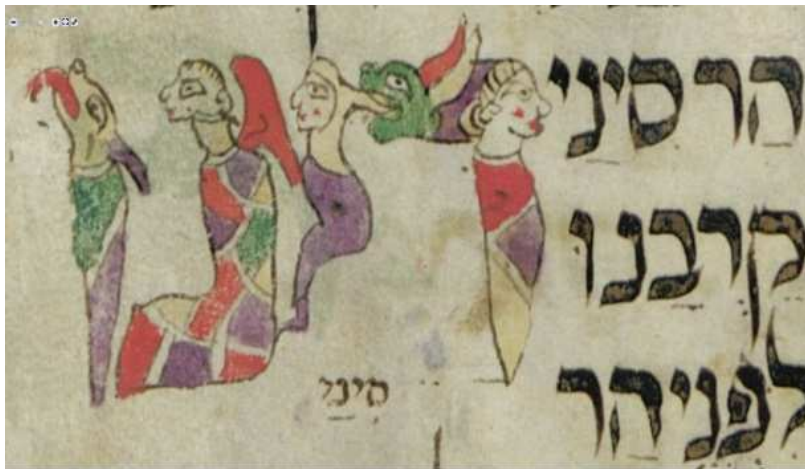 הרסיני
קרבנו
לפניהר
דינו
סיני